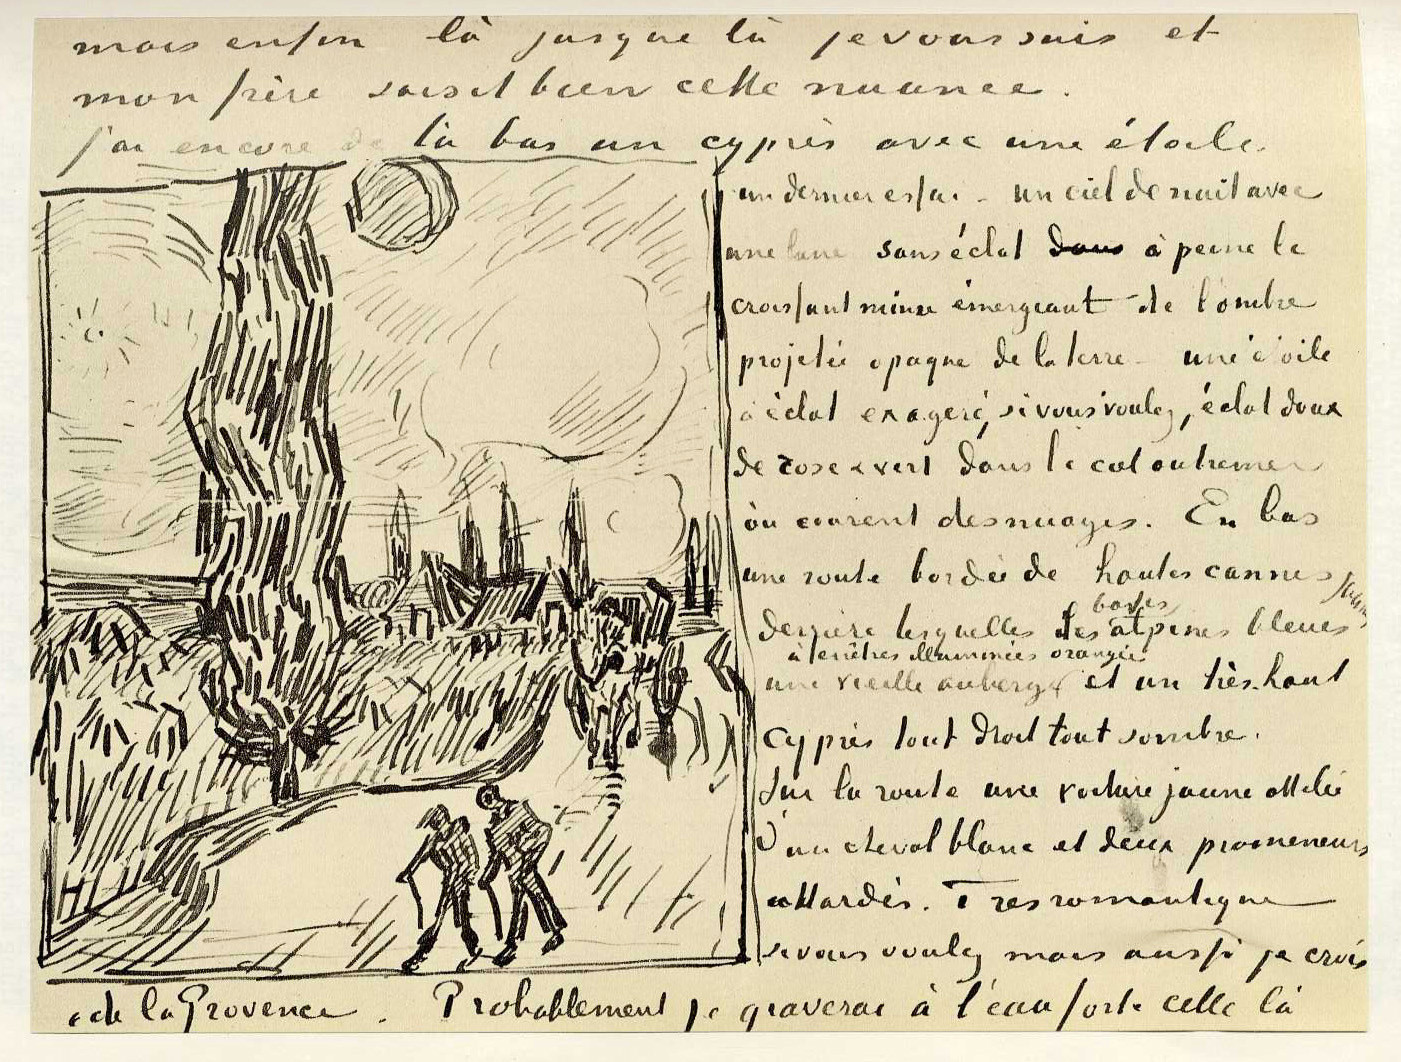 mais enfin là jusque là je vous suis et
mon frère saisit bien cette nuance.
j'ai encore de là bas un cyprès avec une étoile.
un dernier essai – un ciel de nuit avec
une lune sans éclat dans à peine le
croissant mince émergeant de l'ombre
projetée opaque de la terre – une étoile
à éclat exageré, si vous voulez, éclat doux
de rose & vert dans le ciel outremer
où courent des nuages. En bas
une route bordée de hautes cannes jaunes
derrière lesquelles les basses alpines bleues
une vieille auberge à fenêtres illuminées orangée et un très haut
cyprès tout droit tout sombre.
Sur la route une voiture jaune attelée
d'un cheval blanc et deux promeneurs
attardés. Très romantique
si vous voulez mais aussi je crois
de la Provence. Probablement je graverai à l'eau forte celle là